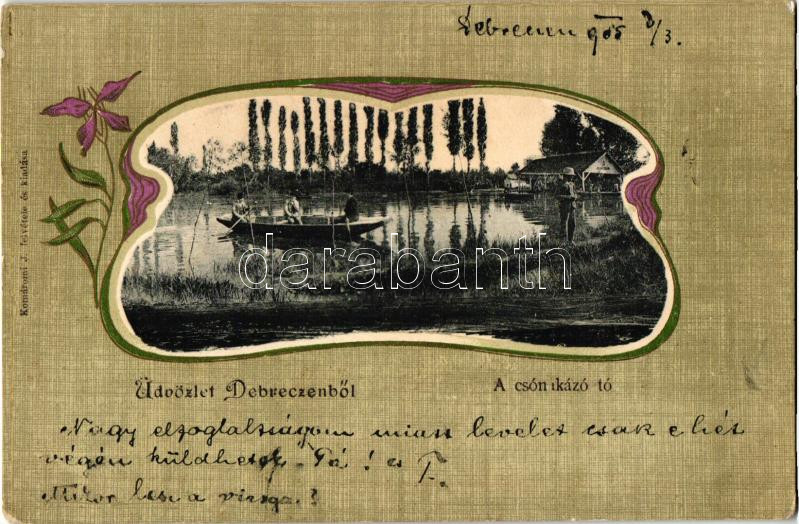 Debrecen 905 3/3.
Komáromi J. felvétele és kiadása
darabanth
Üdvözlet Debreczenből
A csónakázó tó
Nagy elfoglaltságom miatt levelet csak e hét
végén küldhetek. Pá! és
Mikor lesz a vizsga?